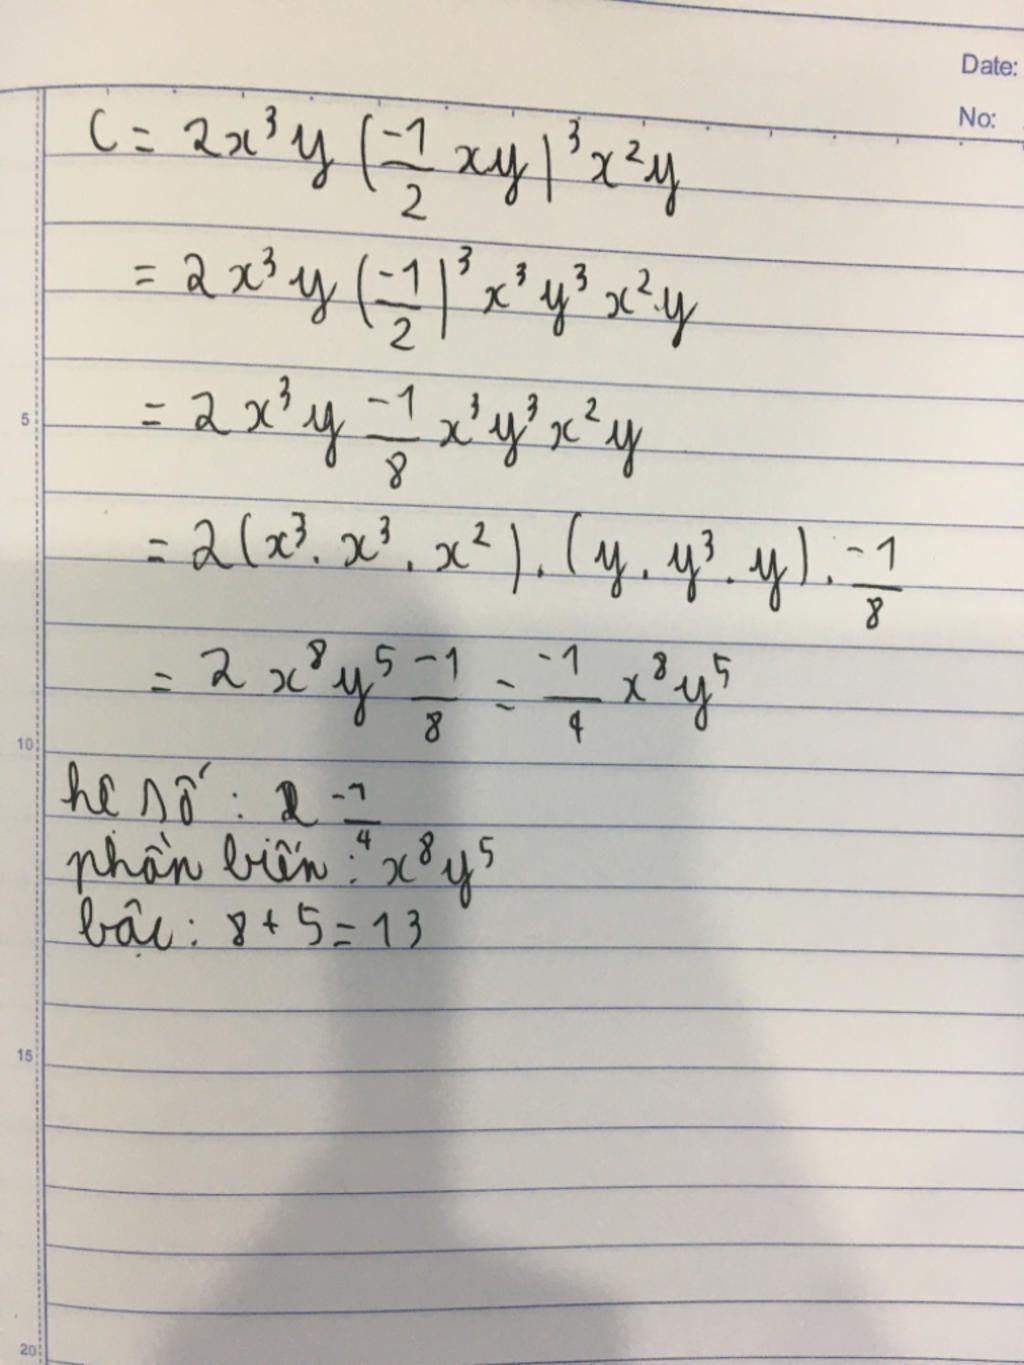 Date:
No:
C = 2x³y (-1/2 xy)³ x²y
= 2x³y (-1/2)³ x³y³x².y
5
= 2x³y -1/8 x³y³x²y
= 2(x³. x³. x²). (y. y³. y). -1/8
= 2x⁸y⁵ -1/8 = -1/4 x⁸y⁵
10
hê số: -1/4
phần biến: x⁸y⁵
bậc: 8+5=13
15
20